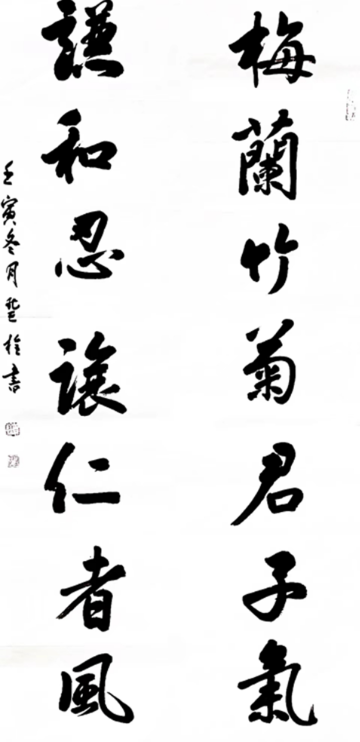 梅蘭竹菊君子氣
謙和忍讓仁者風
壬寅冬月
書